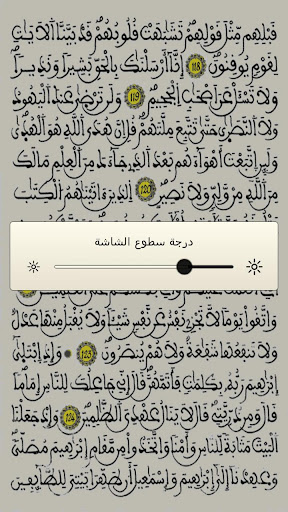 قَبْلِهِم مِّثْلَ قَوْلِهِمْ تَشَٰبَهَتْ قُلُوبُهُمْ قَدْ بَيَّنَّا ٱلَايَٰتِ
لِقَوْمٍ يُوقِنُونَ 118 إِنَّآ أَرْسَلْنَٰكَ بِالْحَقِّ بَشِيراً وَنَذِيراً
وَلَا تَسْـَٔلْ عَنَ اَصْحَٰبِ ٱلْجَحِيمِ 119 وَلَن تَرْضَىٰ عَنكَ ٱلْيَهُودُ
وَلَا ٱلنَّصَٰرَىٰ حَتَّىٰ تَتَّبِعَ مِلَّتَهُمْ قُلِ اِنَّ هُدَى ٱللَّهِ هُوَ ٱلْهُدَىٰ
وَلَئِنِ ٱتَّبَعْتَ أَهْوَآءَهُم بَعْدَ ٱلَّذِي جَآءَكَ مِنَ ٱلْعِلْمِ مَا لَكَ
مِنَ ٱللَّهِ مِنْ وَلِيٍّ وَلَا نَصِيرٍ 120 ٱلَّذِينَ ءَاتَيْنَٰهُمُ ٱلْكِتَٰبَ
درجة سطوع الشاشة
وَاتَّقُوا يَوْماً لَّا تَجْزِي نَفْسٌ عَن نَّفْسٍ شَيْـٔاً وَلَا يُقْبَلُ مِنْهَا عَدْلٌ
وَلَا تَنفَعُهَا شَفَٰعَةٌ وَلَا هُمْ يُنصَرُونَ 123 وَإِذِ ٱبْتَلَىٰ
إِبْرَٰهِيمَ رَبُّهُ بِكَلِمَٰتٍ فَأَتَمَّهُنَّ قَالَ إِنِّي جَاعِلُكَ لِلنَّاسِ إِمَاماً
قَالَ وَمِن ذُرِّيَّتِي قَالَ لَا يَنَالُ عَهْدِي ٱلظَّٰلِمِينَ 124 وَإِذْ جَعَلْنَا
ٱلْبَيْتَ مَثَابَةً لِّلنَّاسِ وَأَمْناً وَاتَّخَذُوا مِن مَّقَامِ إِبْرَٰهِيمَ مُصَلّىً
وَعَهِدْنَآ إِلَىٰٓ إِبْرَٰهِيمَ وَإِسْمَٰعِيلَ أَن طَهِّرَا بَيْتِيَ لِلطَّآئِفِينَ